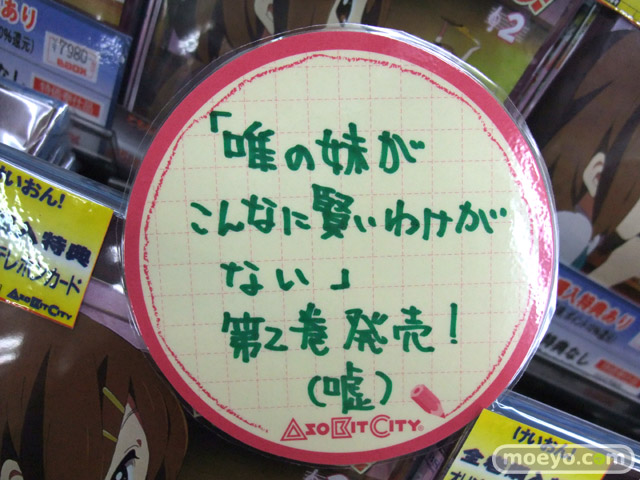 「唯の妹が
こんなに賢いわけが
ない」
第2巻発売!
(嘘)
ASOBITCITY
けいおん!
特典
テレホンカード
ASOBITCITY
あり
7980
購入特典あり
特典なし
けいおん
moeyo.com